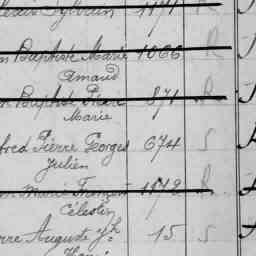 Sylvain 1171 R
n Baptiste Marie 1066 R
Amand
n Baptiste Pierre 871 R
Marie
fred Pierre Georges 674 S
Julien
Marie François 1912 R
Célestin
rre Auguste 15 S